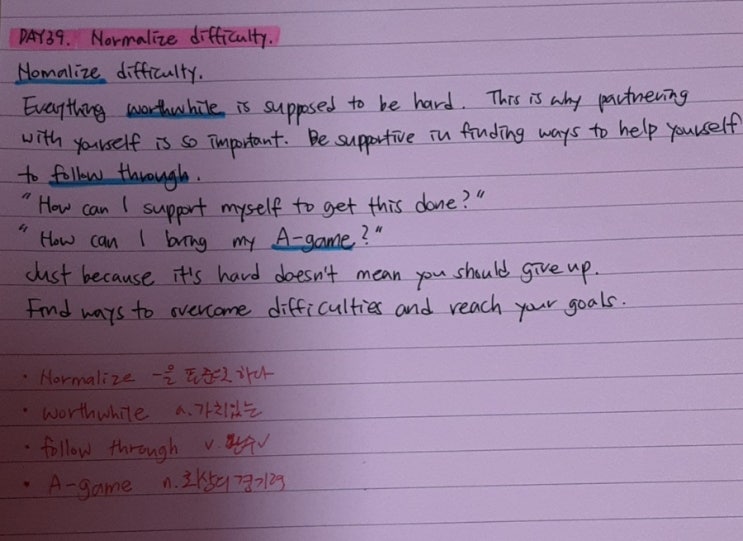 DAY39. Normalize difficulty.
Nomalize difficulty.
Everything worthwhile is supposed to be hard. This is why partnering
with yourself is so important. Be supportive in finding ways to help yourself
to follow through.
"How can I support myself to get this done?"
"How can I bring my A-game?"
Just because it's hard doesn't mean you should give up.
Find ways to overcome difficulties and reach your goals.
· Normalize -을 표준으로 하다
· worthwhile a. 가치있는
· follow through v.
· A-game n. 최상의 경기력